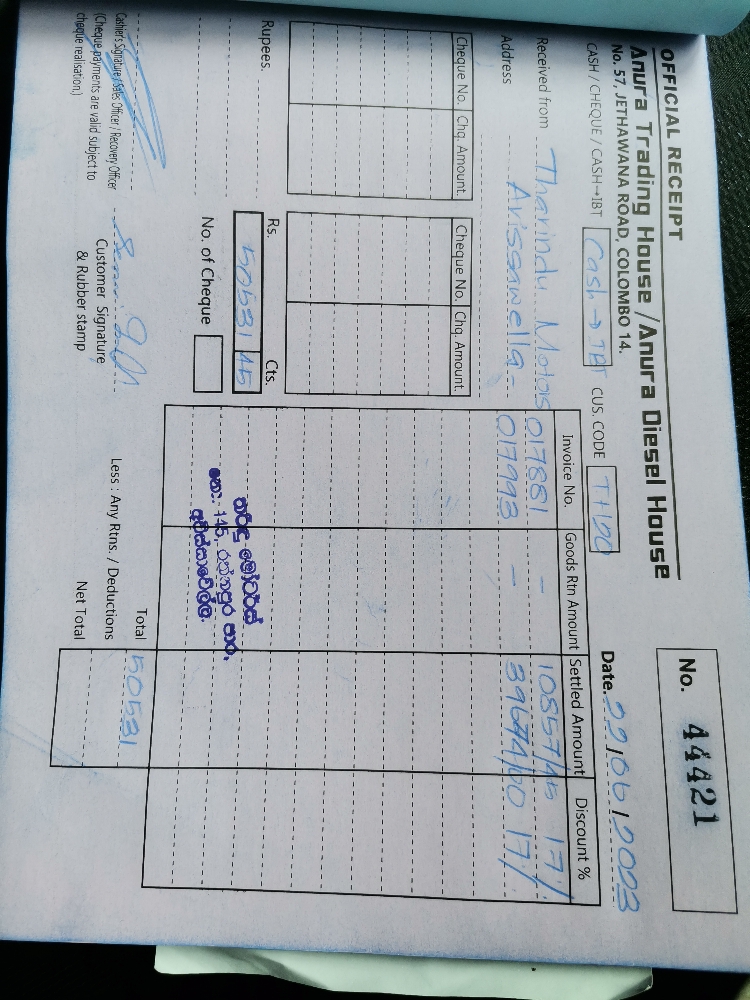 OFFICIAL RECEIPT
Anura Trading House / Anura Diesel House
No. 57, JETHAWANA ROAD, COLOMBO 14.
No. 44421
CASH / CHEQUE / CASH→IBT Cash → IBT CUS. CODE TH100
Date. 22/06/2023
Received from Tharindu Motors
Address Avissawella -
Invoice No. Goods Rtn Amount Settled Amount Discount %
017881 - 10857/45 17%
017993 - 39674/00 17%
Cheque No. Chq. Amount. Cheque No. Chq. Amount.
Rs. Cts.
Rupees. 50531 45
No. of Cheque
තරිඳු මෝටර්ස්
නො. 145, රත්නපුර පාර,
අවිස්සාවේල්ල.
Total 50531
Less : Any Rtns. / Deductions
Net Total
Cashier's Signature / Sales Officer / Recovery Officer
(Cheque payments are valid subject to
cheque realisation.)
Customer Signature
& Rubber stamp